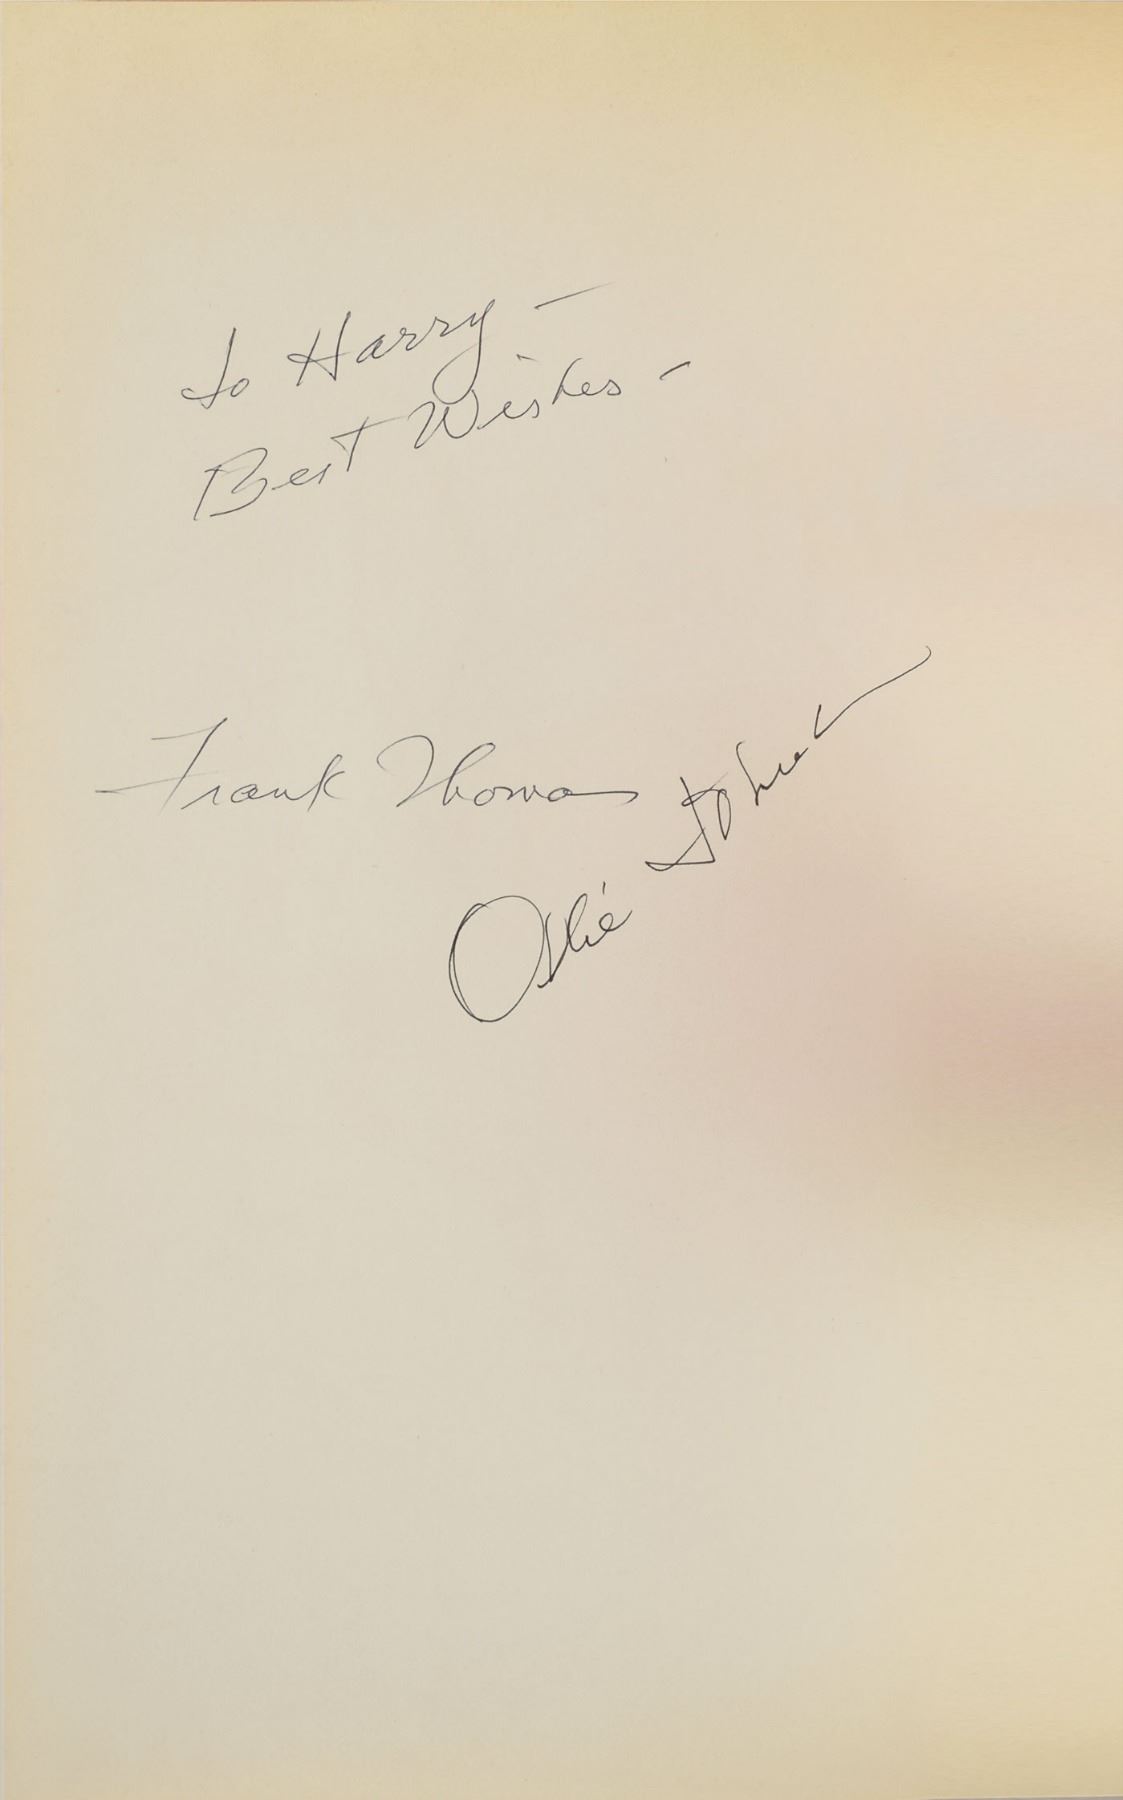 To Harry –
Best Wishes –
Frank Thomas
Ollie Johnston